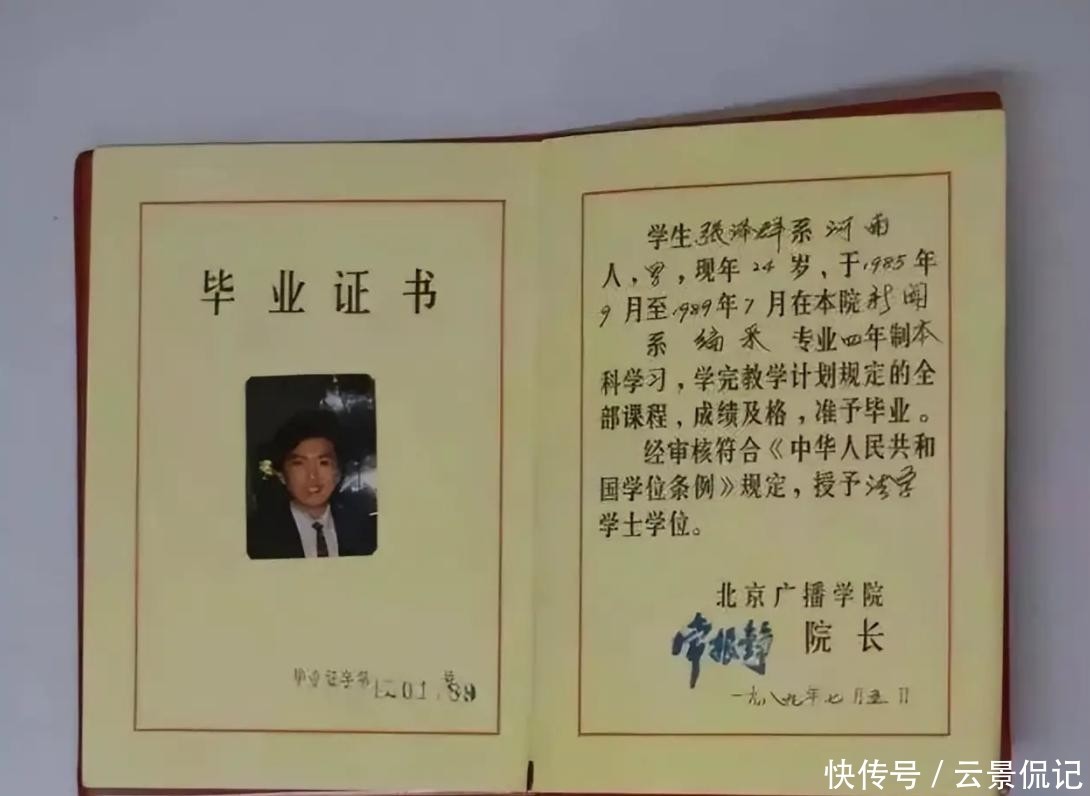 毕业证书
毕业证字第
89
学生张泽群系河南
人，男，现年24岁，于1985年
9月至1989年7月在本院新闻
系 编采 专业四年制本
科学习，学完教学计划规定的全
部课程，成绩及格，准予毕业。
经审核符合《中华人民共和
国学位条例》规定，授予法学
学士学位。
北京广播学院
常振铮 院长
一九八九年七月五日
快传号 / 云景侃记